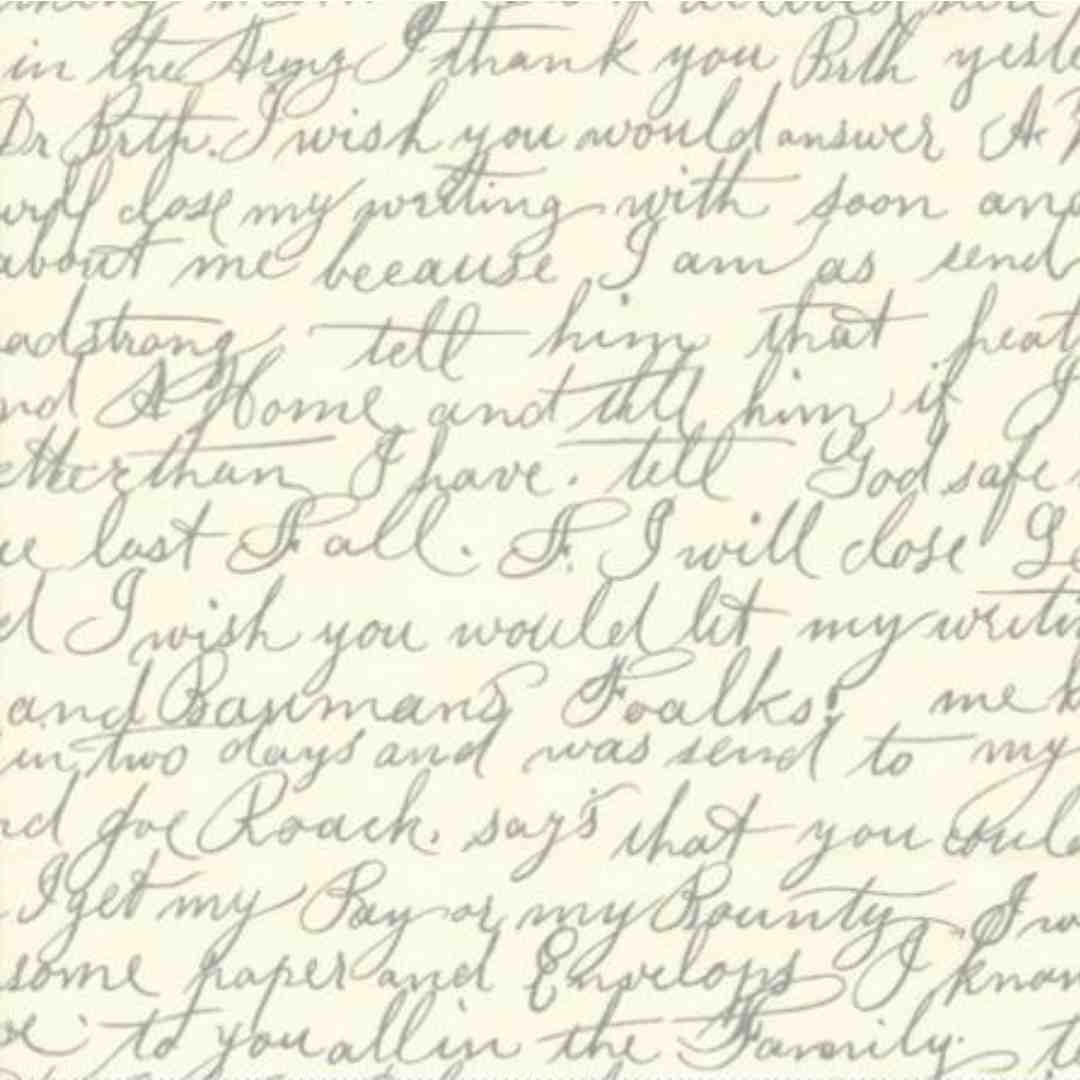 in the Army I thank you Brth yeste
Dr Brth. I wish you would answer A
will close my writing with soon and
about me because I am as send
adstrong tell him that heat
nd A Home and till him if I
ether than I have. tell God safe
ue last Fall. F. I will close Le
d I wish you would let my writi
and Baumans Foalks. me
in two days and was send to my
nd Joe Roach. says that you could
I get my Pay or my Bounty I w
some paper and Envelops I know
to you all in the Family. t